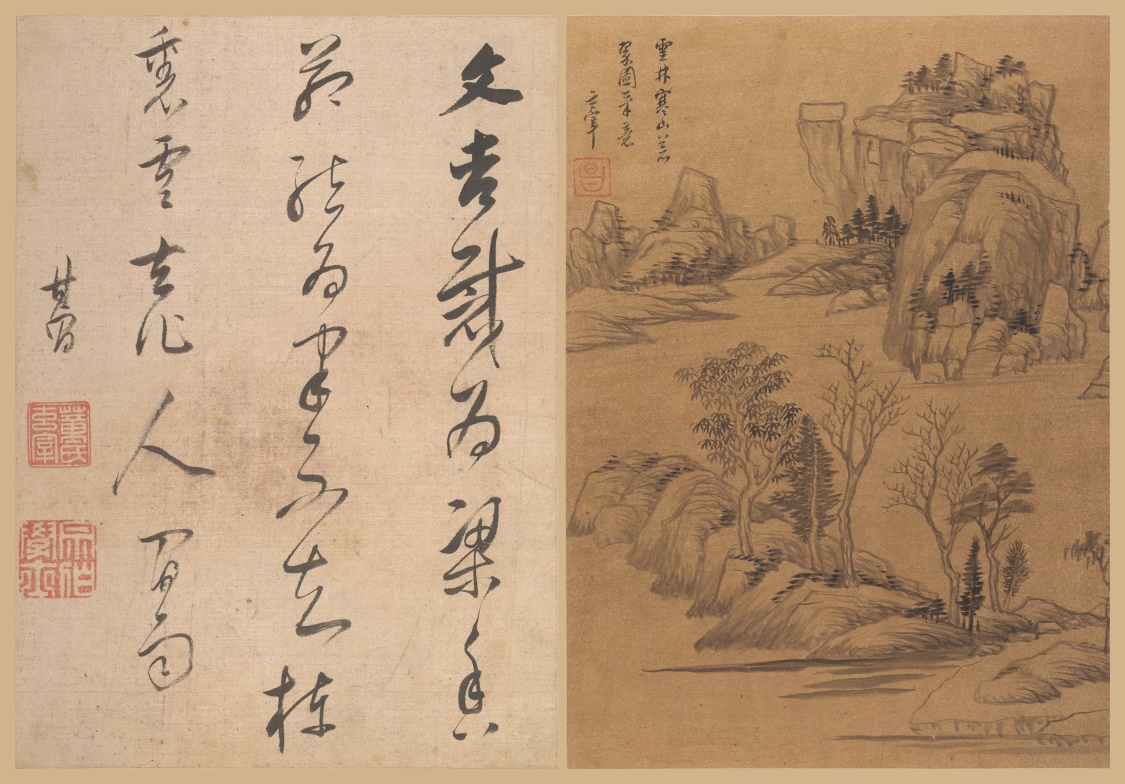 雲林寒山蒼
翠圖筆意
玄宰
昌
文杏裁為梁香
茅結為宇不知棟
裏雲去作人間雨
其昌
董氏玄宰